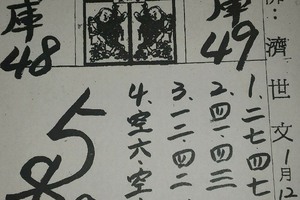 庫
49
庫
48
濟世文
1月12
1、二七四七
2、四一四三
3、一二、四二
4、空六空
5